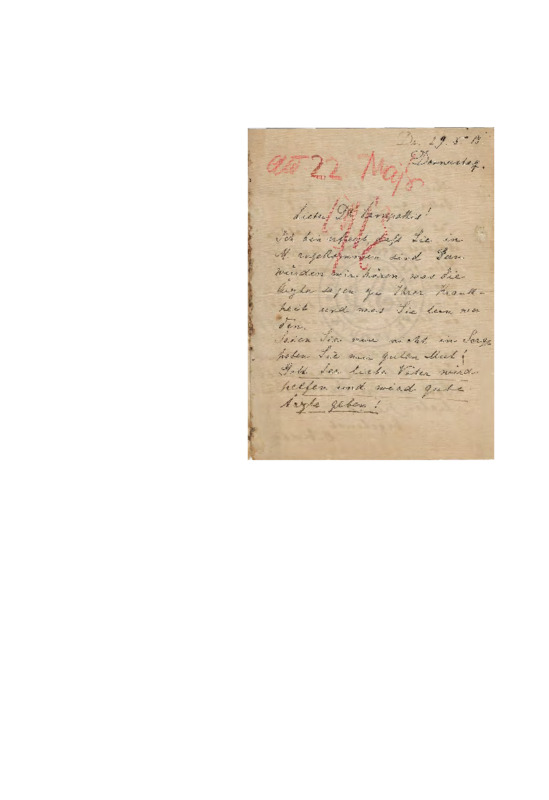 29. 5. 15
Donnerstag.
22 Majs
Lieber Dr.
Ich bin erfreut daß Sie in
M. angekommen sind. Dan
würden wir hören, was die
Ärzte sagen zu Ihrer Krank-
heit und was Sie tun
den.
Seien Sie nur nicht in Sorge
haben Sie nur guten Mut!
Gott der liebe Vater wird
helfen und wird gute
Ärzte geben!